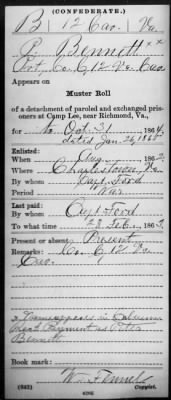 (CONFEDERATE.)
B 12 Cav. Va.
P. Bennett **
Pvt., Co. C, 12 Va. Cav.
Appears on
Muster Roll
of a detachment of paroled and exchanged prisoners at Camp Lee, near Richmond, Va.,
for to Oct. 31 1864.
dated Jan. 26, 1865
Enlisted:
When Aug. 1862.
Where Charlestown, Va.
By whom Capt. Ford
Period War
Last paid:
By whom Capt. Ford
To what time 28 Feb., 1863.
Present or absent Present
Remarks: Co. C, 12 Va.
Cav.
Name appears in column
Bennett
Book mark:
(642)
Copyist.